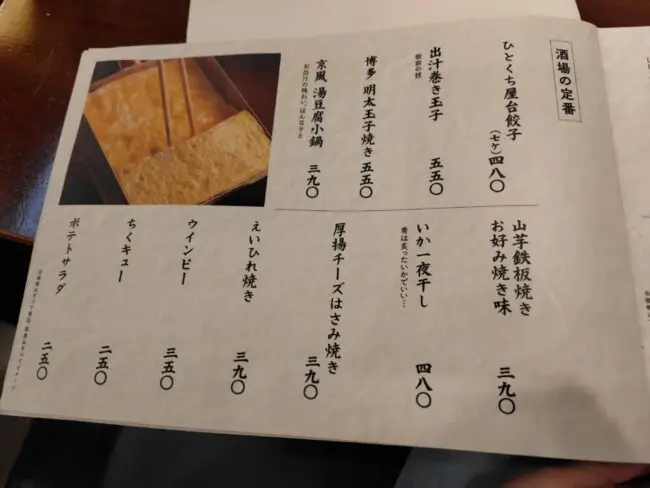 酒場の定番
ひとくち屋台餃子
(七ケ)四八〇
出汁巻き玉子
五五〇
博多 明太玉子焼き 五五〇
京風 湯豆腐小鍋
お出汁の味わい、ほんなりと
三九〇
山芋鉄板焼き
お好み焼き味
三九〇
いか一夜干し
肴は炙ったいかでいい…
四八〇
厚揚チーズはさみ焼き
三九〇
えいひれ焼き
三九〇
ウインビー
三五〇
ちくキュー
二五〇
ポテトサラダ
二五〇